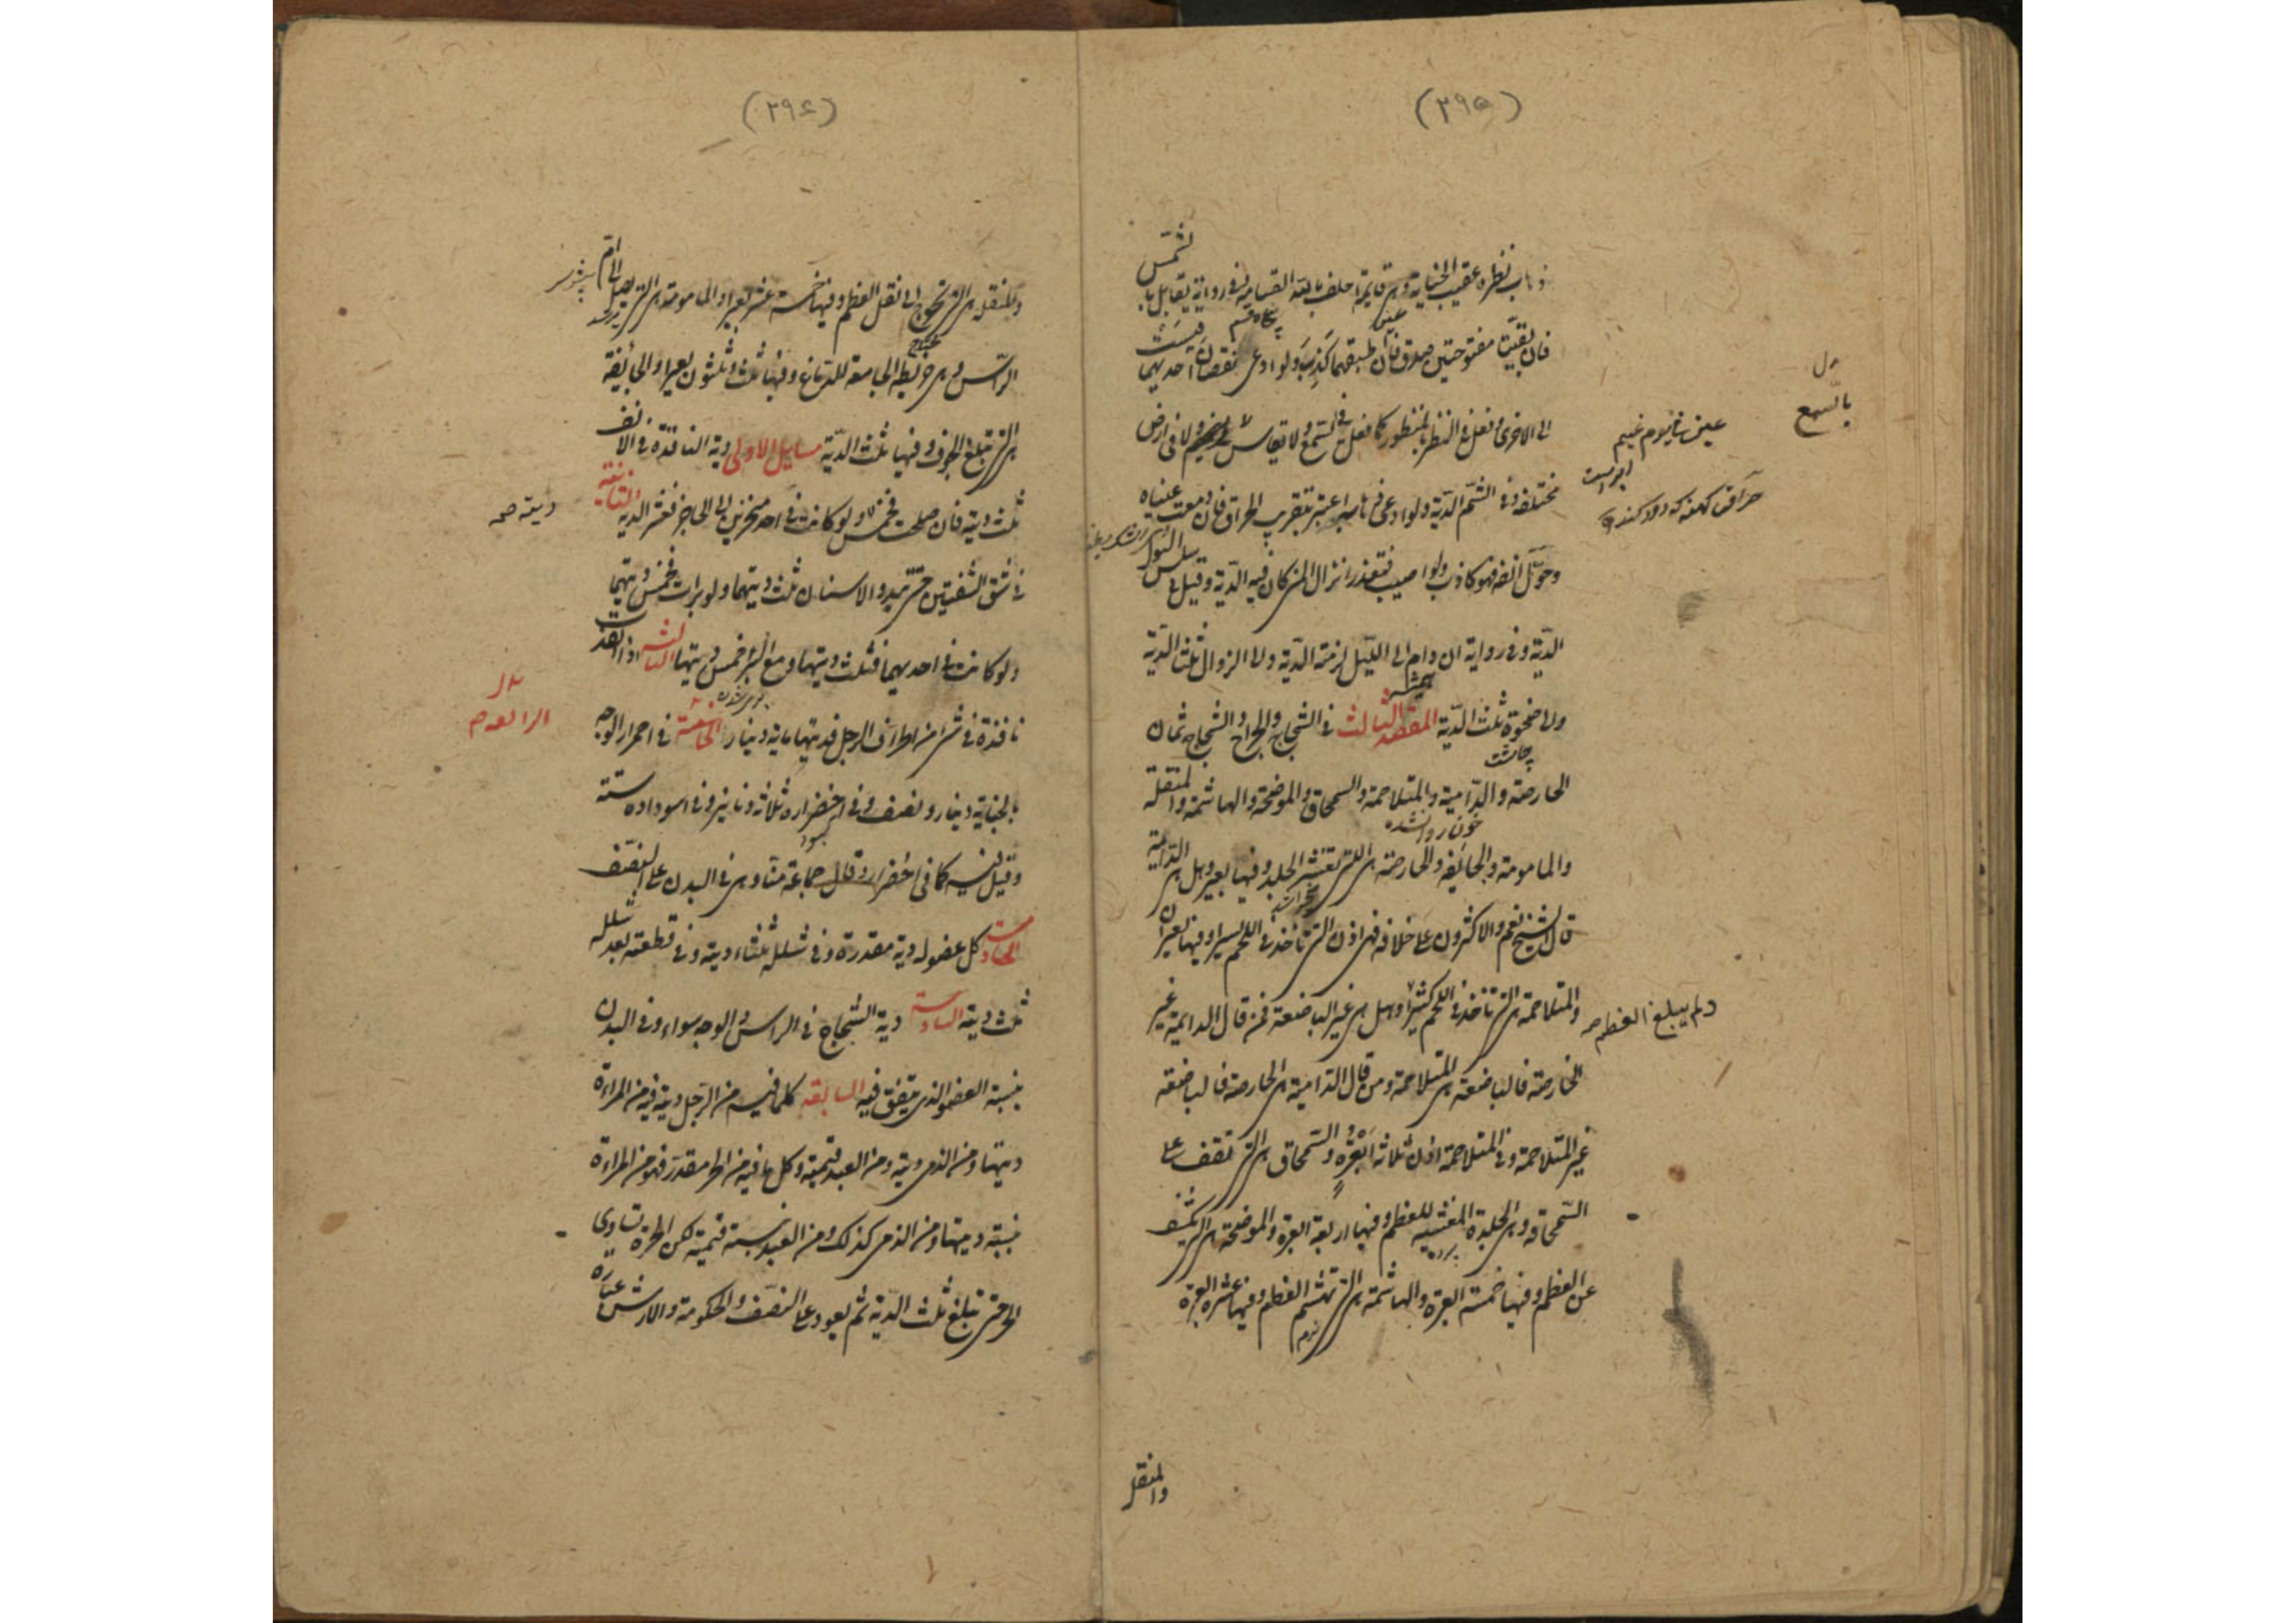 (۳۹۵)
ذهاب نظره عقيب الجناية وهي قائمة احلف بالله القسامة وفي رواية يقابل بالشمس
فان بقيتا مفتوحتين صدق فان طبقهما كذب ولو ادعى نقصان احديهما قيست
الى الاخرى وفعل في النظر بالمنظور كما فعل في السمع ولا يقاس في غيم ولا في ارض
مختلفة وفي الشم الدية ولو ادعى ذهابه اعتبر بتقريب الحراق فان دمعت عيناه
وحول انفه فهو كاذب ولو اصيب فتعذر انزال المني كان فيه الدية وقيل في سلس البول
الدية وفي رواية ان دام الى الليل لزمته الدية والى الزوال ثلثا الدية
والى ضحوة ثلث الدية المقصد الثالث في الشجاج والجراح والشجاج ثمان
الحارصة والدامية والمتلاحمة والسمحاق والموضحة والهاشمة والمنقلة
والمامومة والجائفة والحارصة هي التي تقشر الجلد وفيها بعير وهل هي الدامية
قال الشيخ نعم والاكثرون على خلافه فهي اذن التي تأخذ في اللحم يسيرا وفيها بعيران
والمتلاحمة هي التي تأخذ في اللحم كثيرا وهل هي غير الباضعة فمن قال الدامية غير
الحارصة فالباضعة هي المتلاحمة ومن قال الدامية هي الحارصة فالباضعة
غير المتلاحمة وفي المتلاحمة اذن ثلاثة ابعرة والسمحاق هي التي تقف على
السمحاقة وهي الجلدة المغشية للعظم وفيها اربعة ابعرة والموضحة هي التي تكشف
عن العظم وفيها خمسة ابعرة والهاشمة هي التي تهشم العظم وفيها عشرة ابعرة
بالسمع
ولم يبلغ العظم صح
والمنقل
(۳۹۶)
والمنقلة هي التي تحوج الى نقل العظم وفيها خمسة عشر بعيرا والمامومة هي التي تصل الى ام
الراس وهي خريطة الجامعة للدماغ وفيها ثلث وثلثون بعيرا والجائفة
هي التي تبلغ الجوف وفيها ثلث الدية مسايل الاولى دية النافذة في الانف
ثلث دية فان صلحت فخمس ولو كانت في احد منخرين الى الحاجز فعشر الدية الثانية
في شق الشفتين حتى تبدو الاسنان ثلث ديتهما ولو برات فخمس ديتهما
ولو كانت في احديهما فثلث ديتها ومع البرء خمس ديتها الثالثة اذا نفذت
نافذة في شئ من اطراف الرجل فديتها مائة دينار الخامسة في احمرار الوجه
بالجناية دينار ونصف وفي اخضراره ثلاثة دنانير وفي اسوداده ستة
وقيل فيه كما في اخضرار وقال جماعة منا وهي في البدن على النصف
كل عضو له دية مقدرة وفي شلله ثلثا دية وفي قطعه بعد شلله
ثلث دية السادسة دية الشجاج في الراس والوجه سواء وفي البدن
بنسبة العضو الذي يتفق فيه السابعة كلما فيه من الرجل ديته فيه من المراءة
ديتها ومن الذمي ديته ومن العبد قيمته وكل ما فيه من الحر مقدر فهو من المراءة
بنسبة ديتها ومن الذمي كذلك ومن العبد بنسبة قيمته لكن الحرة تساوي
الحر حتى تبلغ ثلث الدية ثم يعود على النصف والحكومة والارش عبارة
ديته صح
الرابعة صح